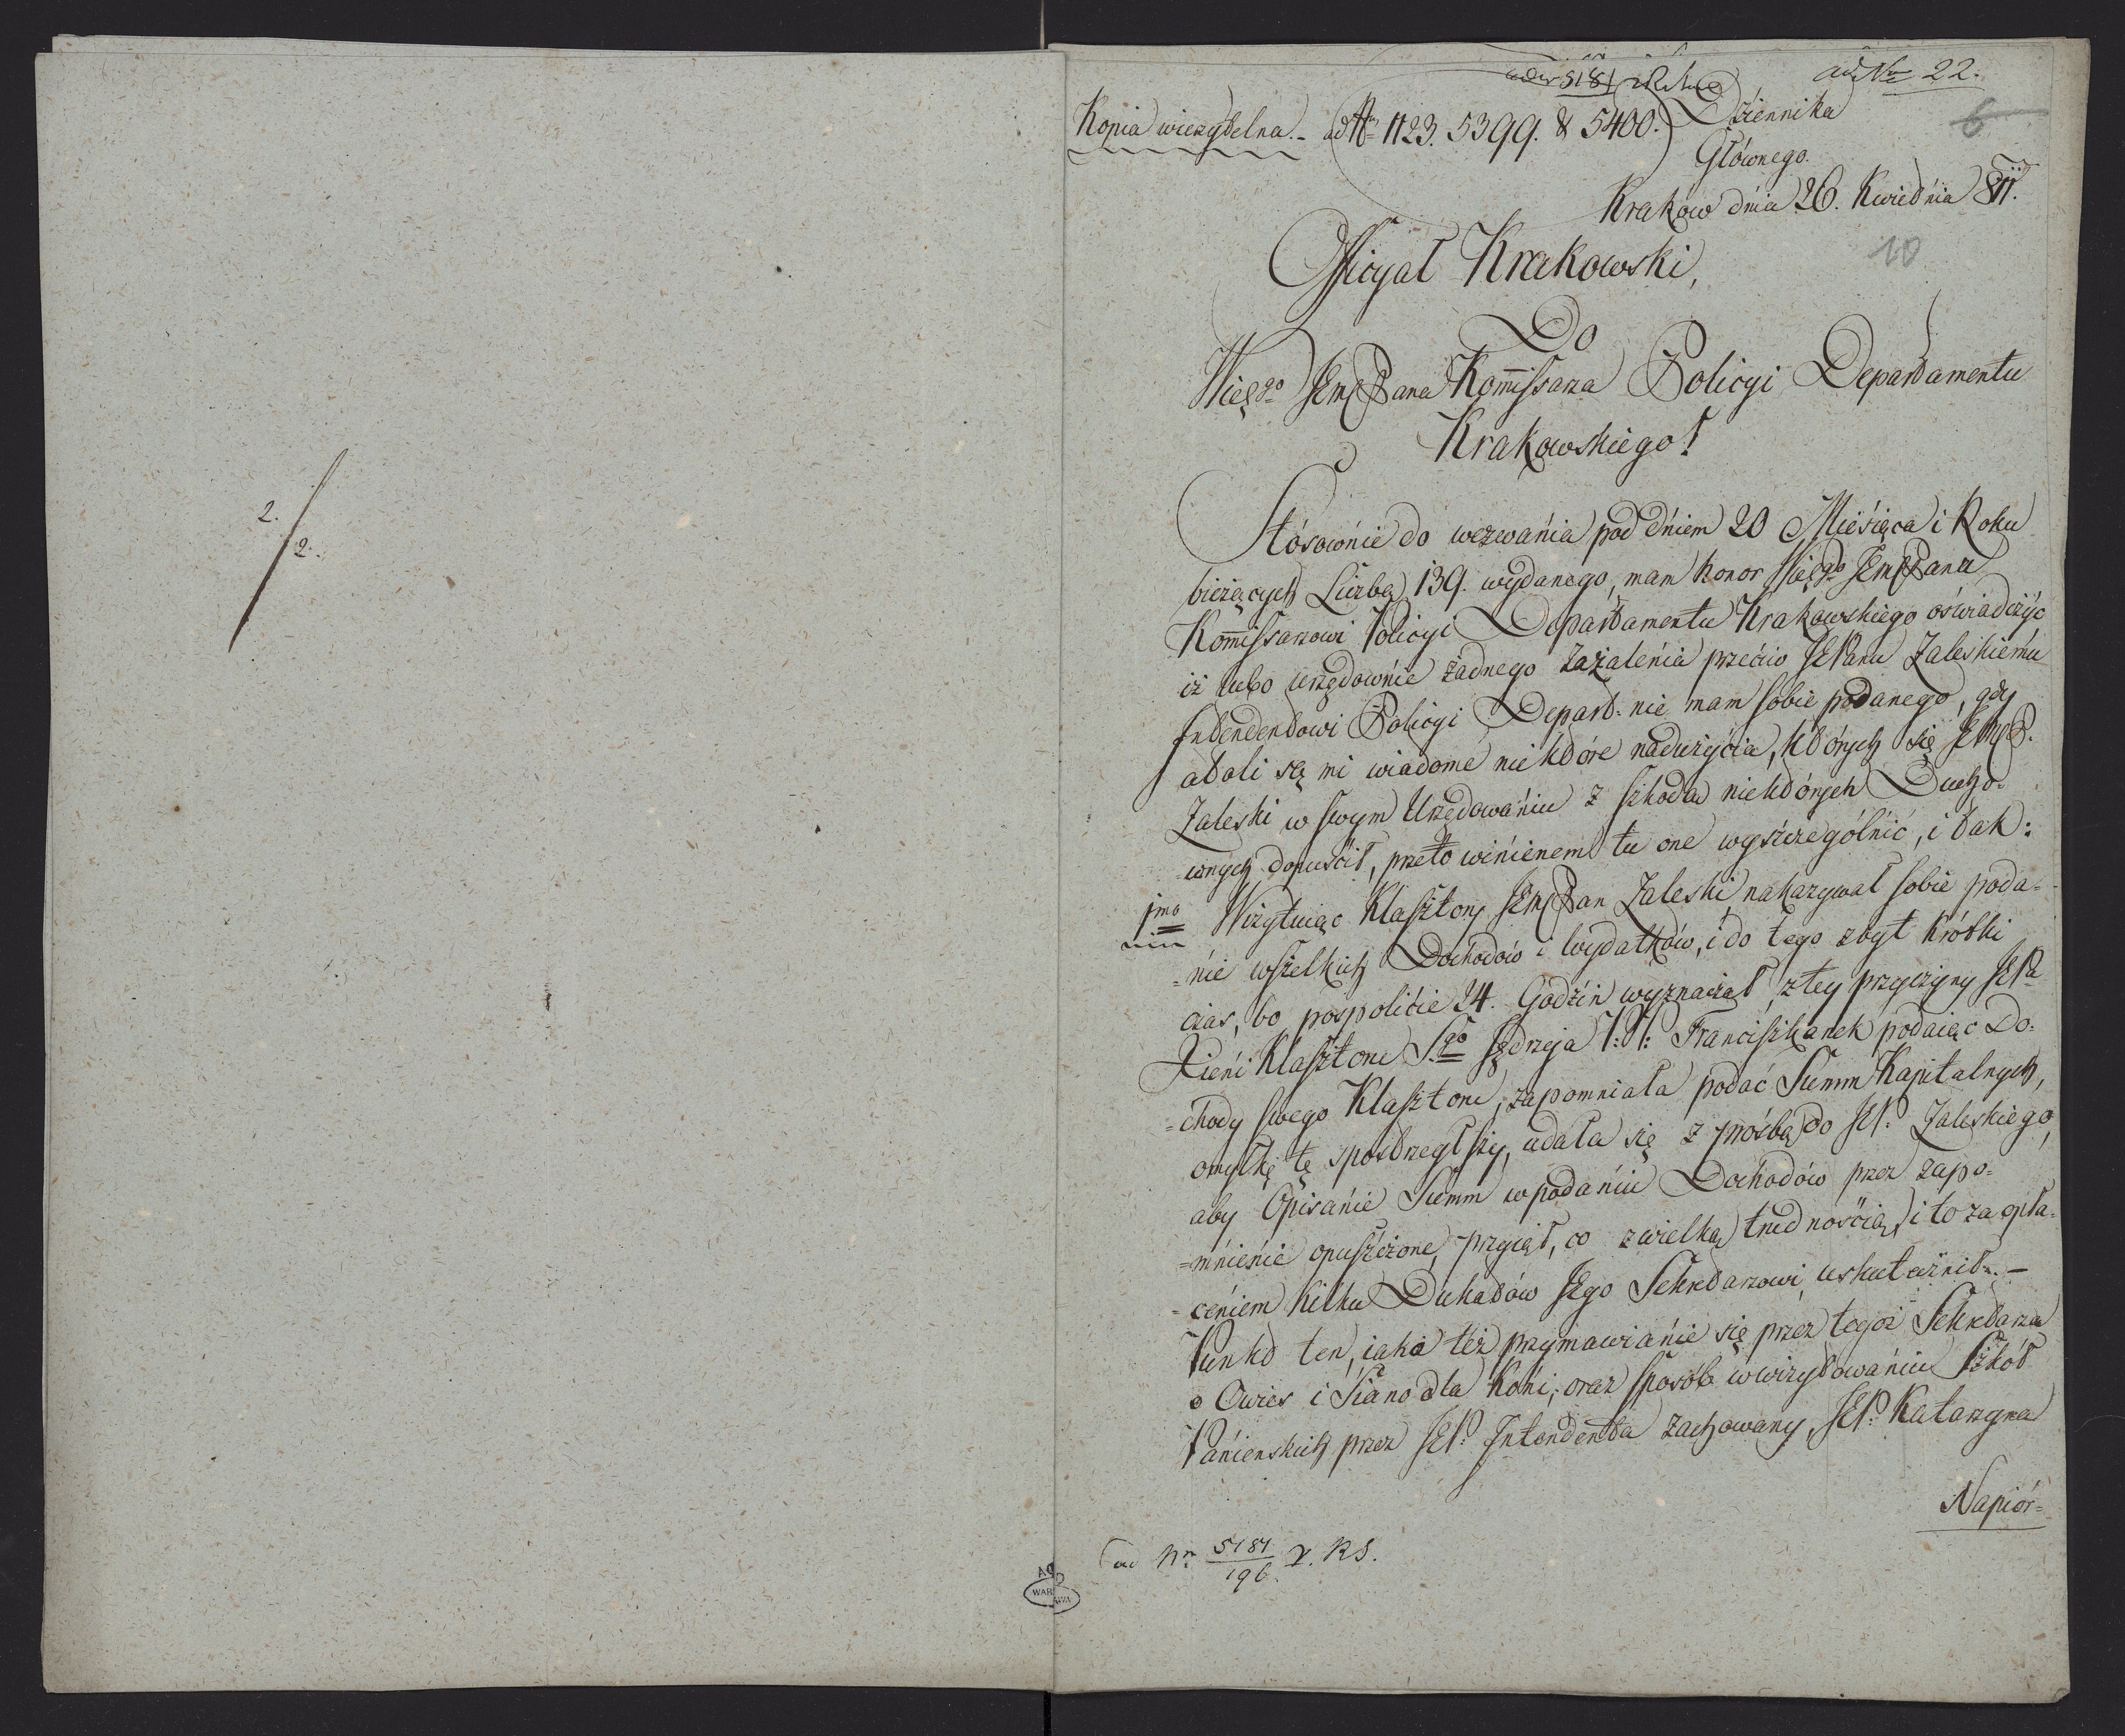 2./2.
ad Nr 5181
ad Nrm 22.
Kopia wierzytelna. ad Nr 1123. 5399. & 5400. Dziennika
6
Głównego.
Krakow dnia 26. Kwietnia 811.
10
Officyał Krakowski,
Do
Wielgo JEmsć Pana Kommissarza Policyi Departamentu
Krakowskiego!
Stósownie do wezwania pod dniem 20 Miesiąca i Roku
bieżących Liczbą 139. wydanego, mam honor Wielgo JEmść Pana
Kommissarzowi Policyi Departamentu Krakowskiego oświadczyć
iż lubo urzędownie żadnego Zażalenia przeciw JEPanu Zaleskiemu
Intendentowi Policyi Depart. nie mam sobie podanego, gdy
atoli są mi wiadome niektóre nadużycia, których się JEmść P.
Zaleski w swym Urzędowaniu z szkodą niektórych Ducho-
wnych dopuścił, przeto winienem tu one wyszczególnić, i tak:
1mo Wizytuiąc Klasztory JEmść Pan Zaleski nakazywał sobie poda-
=nie wszelkich Dochodów i wydatków, i do tego zbyt krótki
czas, bo pospolicie 24. Godzin wyznaczał, z tey przyczyny JEPa
Xieni Klasztoru Sgo Jędrzeja P:P: Franciszkanek podaiąc Do=
=chody swego Klasztoru, zapomniała podać Summ Kapitalnych,
omyłkę tę spostrzegłszy, udała się z prośbą do JEP. Zaleskiego,
aby Opisanie Summ w podaniu Dochodów przez zapo=
=mnienie opuszczone, przyiął, co z wielką trudnością, i to za opła-
=ceniem kilku Dukatów JEgo Sekretarzowi uskutecznił. –
Punkt ten, iako też przymawianie się przez tegoż Sekretarza
o Owies i Siano dla Koni, oraz sposób w wizytowaniu Szkół
Panienskich przez JEP. Intendenta zachowany, JEP. Katarzyna
Napiór=
ad Nr 5181/196. RS.